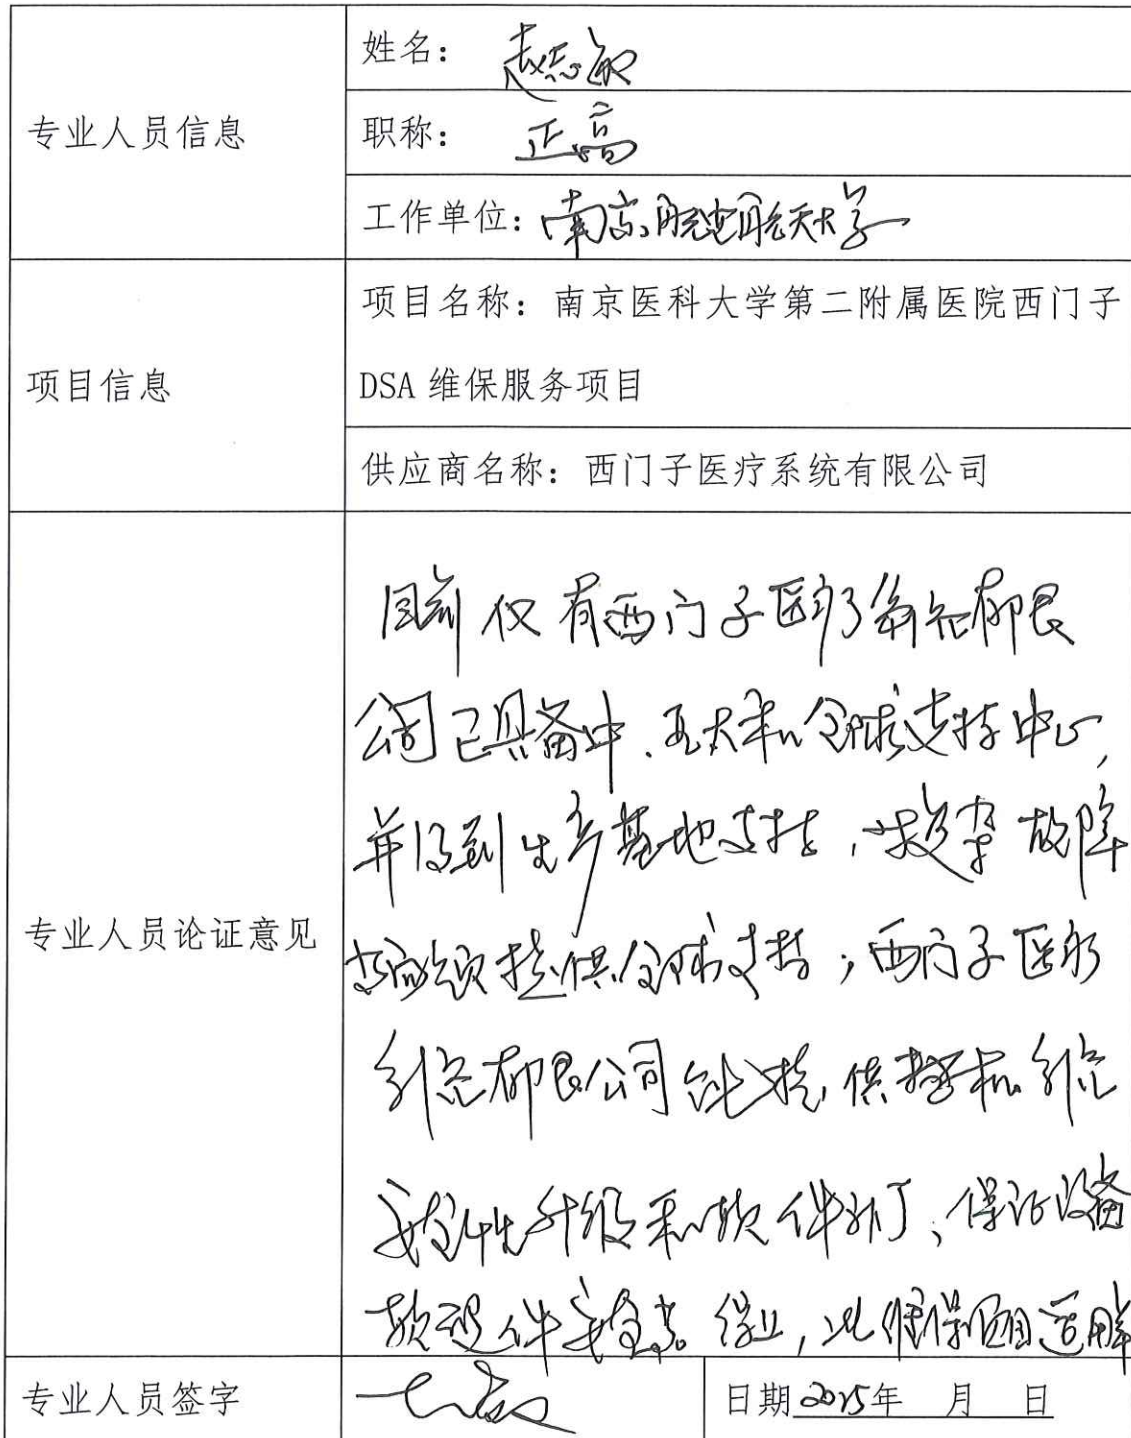 专业人员信息
姓名：赵志敏
职称：正高
工作单位：南京航空航天大学
项目信息
项目名称：南京医科大学第二附属医院西门子
DSA 维保服务项目
供应商名称：西门子医疗系统有限公司
专业人员论证意见
目前仅有西门子医疗系统有限
公司已具备中、亚太和全球支持中心，
并得到生产基地支持，复杂故障
提供全球支持；西门子医疗
系统有限公司能提供整机系统
安全性升级和软件补丁，保证设备
软硬件安全。综上，此维保项目适用单
专业人员签字
日期2025年 月 日